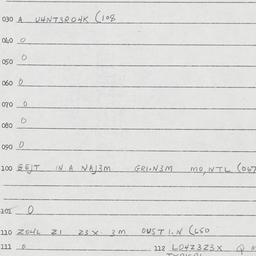 030 A U4NT3RO4K (108
040 0
050 0
060 0
070 0
080 0
090 0
100 EEJT IN A NAJ3M GRI.N3M MO,NTL (067
101 0
110 ZO4L ZI Z3X 3M OUSTI.N (LSO
111 0 112 LO4Z3Z3X